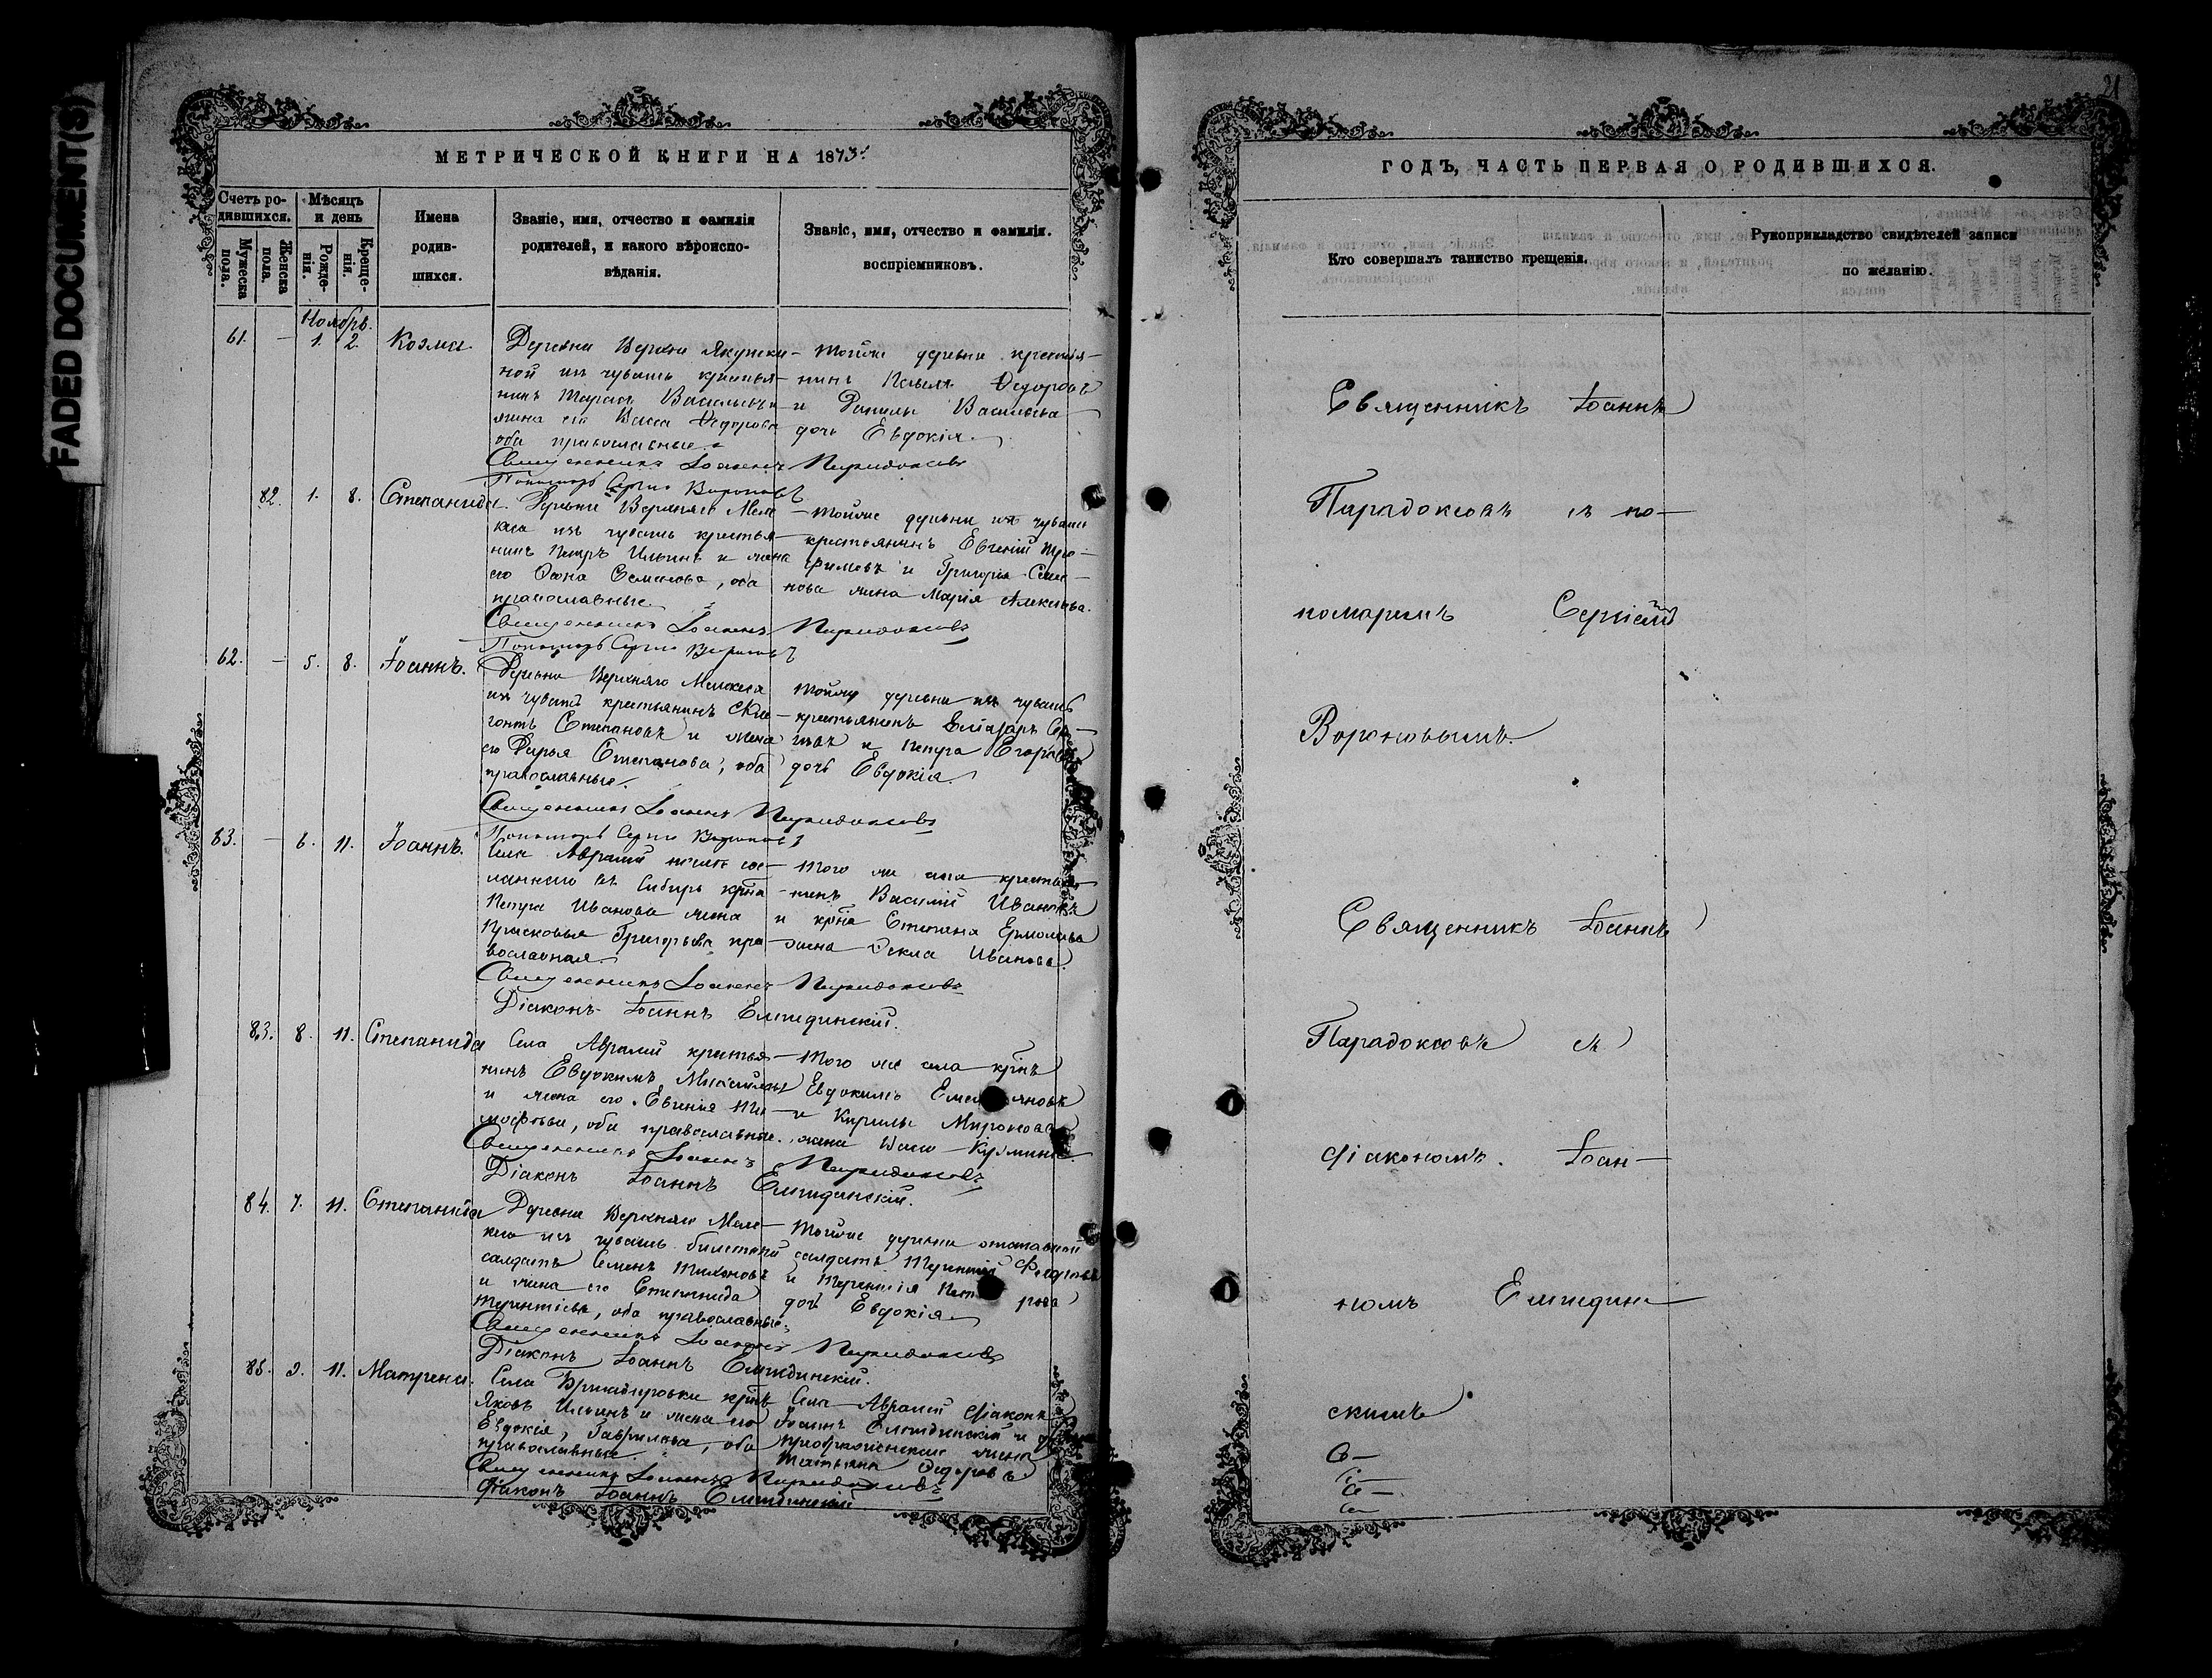 FADED DOCUMENT(S)
МЕТРИЧЕСКОЙ КНИГИ НА 1873
Счетъ ро-
дившихся.
Мужеска
пола.
Женска
пола.
Мѣсяцъ
и день
Рожде-
нія.
Креще-
нія.
Имена
родив-
шихся.
Званіе, имя, отчество и фамилія
родителей, и какого вѣроиспо-
вѣданія.
Званіе, имя, отчество и фамилія.
воспріемниковъ.
Ноябрь.
61. — 1. 2. Козма.
Деревни Верхни Якушки-
ной изъ чувашъ крестья-
нинъ Тарасъ Васильевъ и
жена его Васса Ѳедорова
оба православные.
Тойже деревни крестья-
нинъ Ѳедоровъ
и Данилы Васильева
дочь Евдокія.
Священникъ Іоаннъ Парадоксовъ
Пономарь Сергій Вороновъ
82. 1. 8. Степанида.
Деревни Верхняго Меле-
кеса изъ чувашъ крестья-
нинъ Петръ Ильинъ и жена
его Семенова, оба
православные.
Тойже деревни изъ чувашъ
крестьянинъ Евгеній Тро-
фимовъ и Григорія Семе-
нова жена Марія Алексѣева.
Священникъ Іоаннъ Парадоксовъ
Пономарь Сергій Вороновъ
62. — 5. 8. Іоаннъ.
Деревни Верхняго Мелекеса
изъ чувашъ крестьянинъ
Степановъ и жена
его Дарья Степанова, оба
православные.
Тойже деревни изъ чувашъ
крестьянинъ Елиазаръ
и Петра Егорова
дочь Евдокія.
Священникъ Іоаннъ Парадоксовъ
Пономарь Сергій Вороновъ
83. — 6. 11. Іоаннъ.
Села Авралей послѣ сос-
ланнаго въ Сибирь крна
Петра Иванова жена
Прасковья Григорьева, пра-
вославная.
Того же села крестья-
нинъ Василій Ивановъ
и крна Степана Ермолаева
жена Ѳекла Иванова.
Священникъ Іоаннъ Парадоксовъ
Діаконъ Іоаннъ Елпидинскій.
83. 8. 11. Степанида
Села Авралей крестья-
нинъ Евдокимъ Михайловъ
и жена его Евгенія Ти-
мофѣева, оба православные.
Того же села крнъ
Евдокимъ Емельяновъ
и Кирилы Миронова
жена Кузмина.
Священникъ Іоаннъ Парадоксовъ
Діаконъ Іоаннъ Елпидинскій.
84. 7. 11. Степанида
Деревни Верхняго Меле-
кеса изъ чувашъ билетный
салдатъ Семенъ Тихоновъ
и жена его Степанида
Терентіева, оба православные.
Тойже деревни отставной
салдатъ Терентій Федоровъ
и Терентія Петрова
дочь Евдокія
Священникъ Іоаннъ Парадоксовъ
Діаконъ Іоаннъ Елпидинскій.
85. 9. 11. Матрена.
Села Бригадировки крнъ
Яковъ Ильинъ и жена его
Евдокія Гаврилова, оба
православные.
Села Авралей діаконъ
Іоаннъ Елпидинскій и
жена
Татьяна Ѳедорова
Священникъ Іоаннъ Парадоксовъ
Діаконъ Іоаннъ Елпидинскій
21
ГОДЪ, ЧАСТЬ ПЕРВАЯ О РОДИВШИХСЯ.
Кто совершалъ таинство крещенія.
Рукоприкладство свидѣтелей записи
по желанію.
Священникъ Іоаннъ
Парадоксовъ съ по-
номаремъ Сергіемъ
Вороновымъ.
Священникъ Іоаннъ
Парадоксовъ съ
діакономъ Іоан-
номъ Елпидин-
скимъ